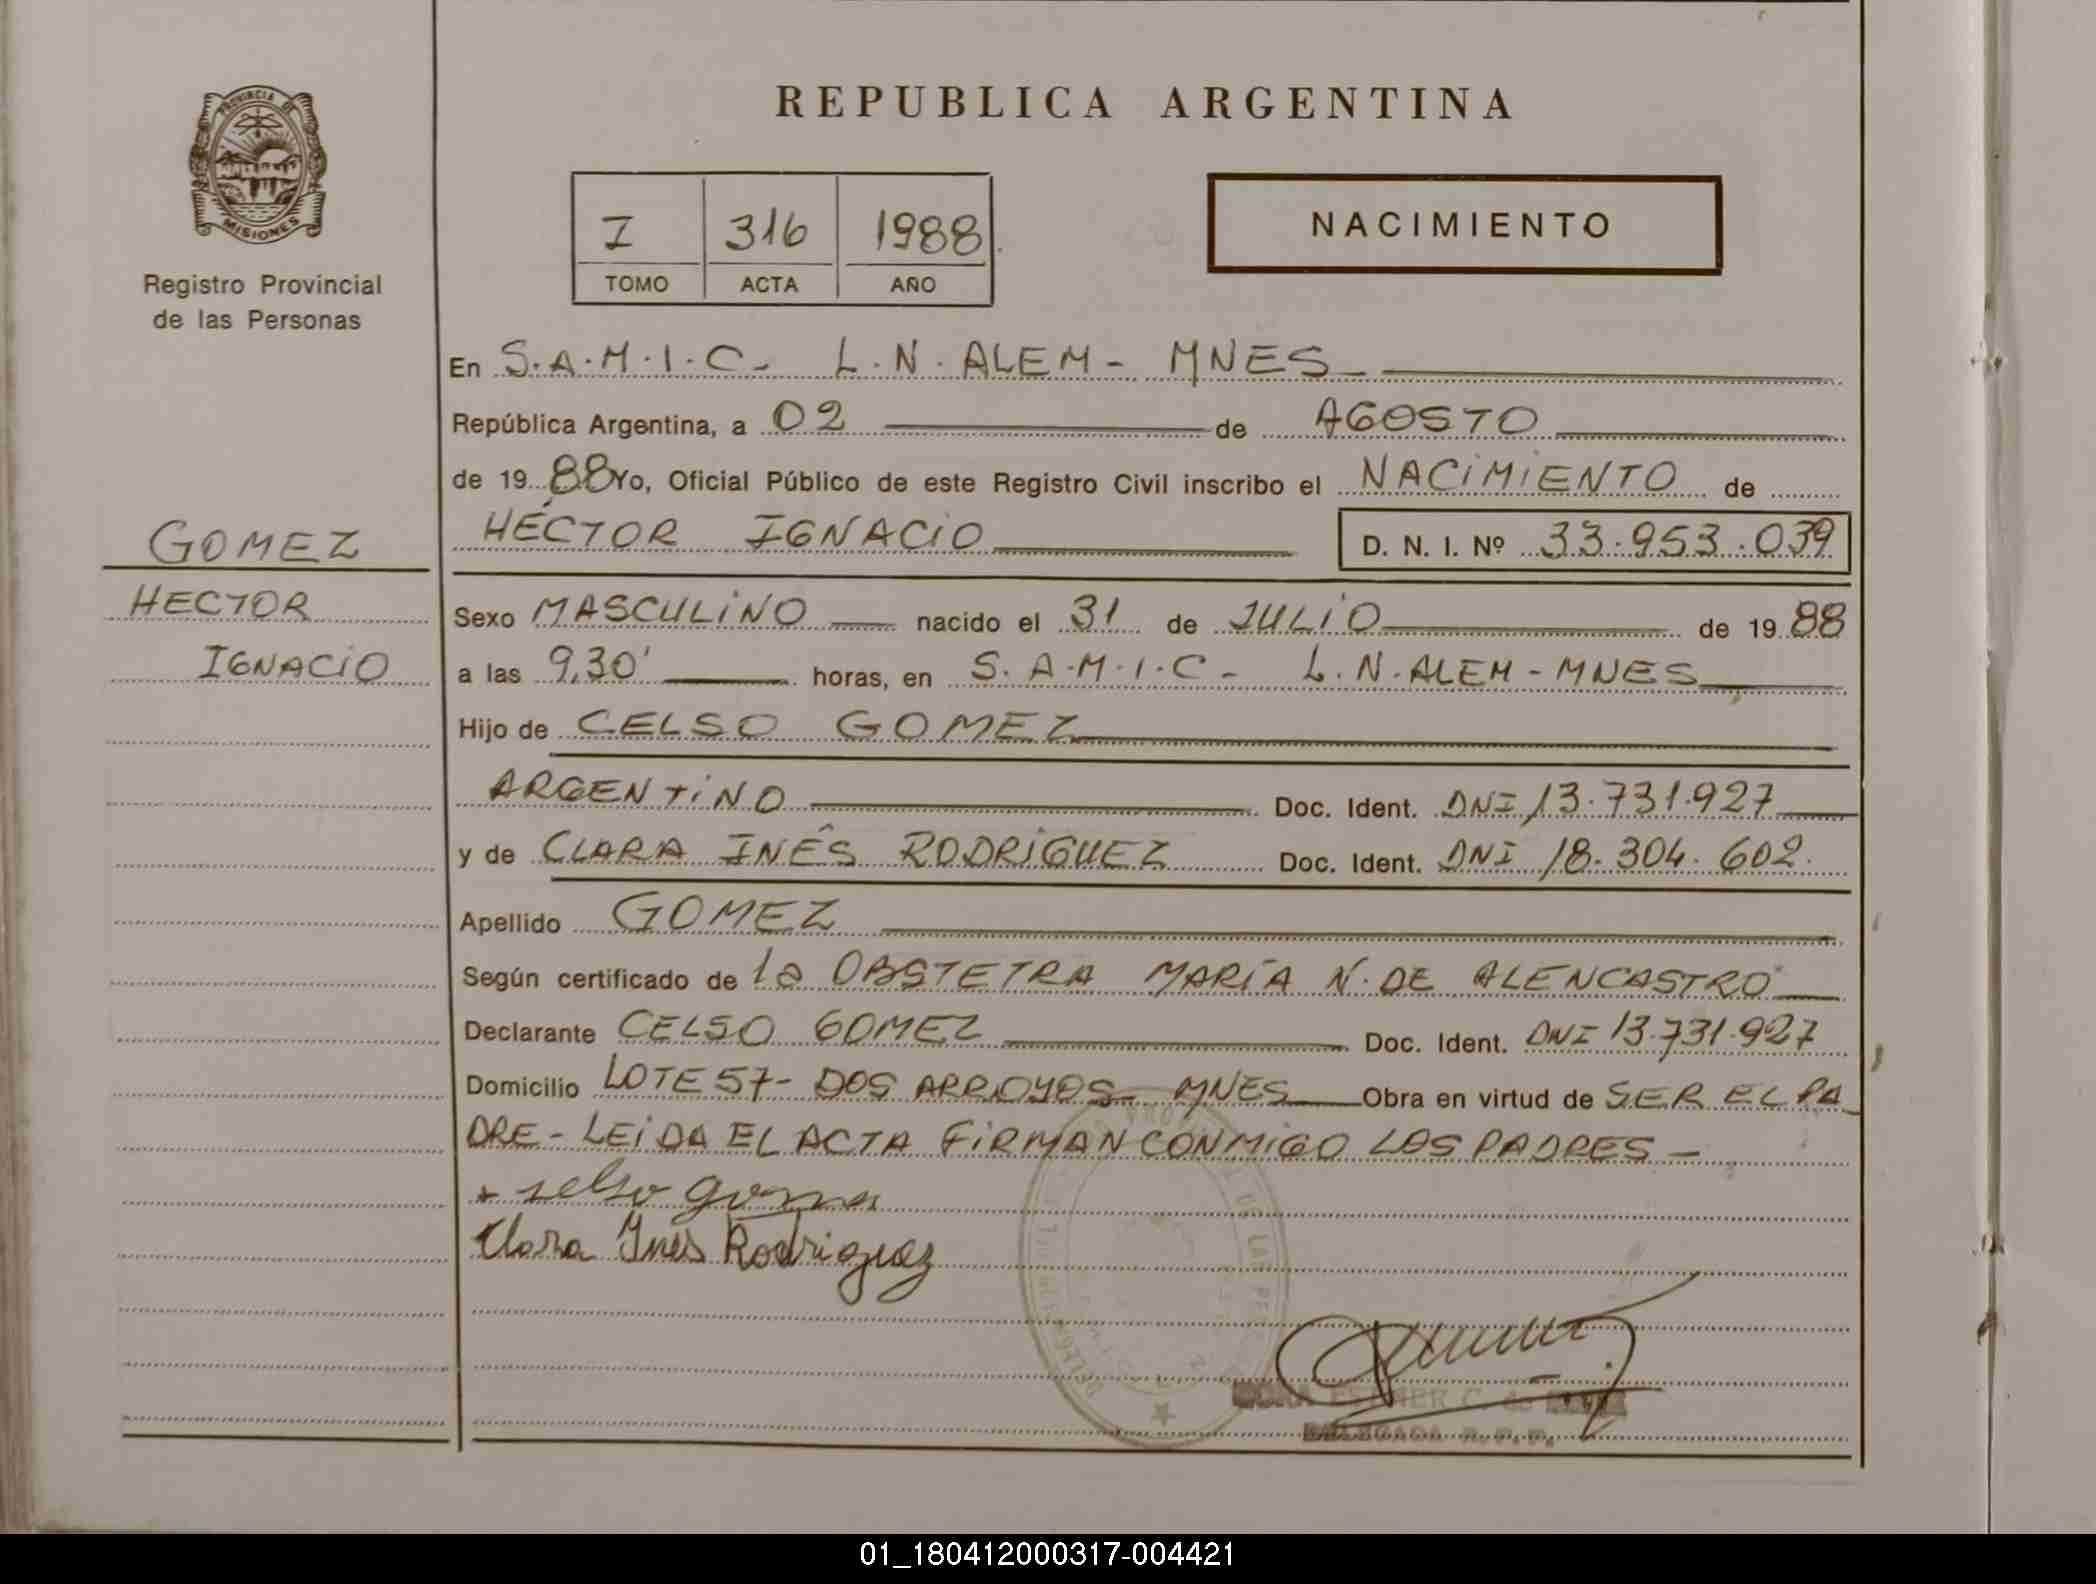 REPUBLICA ARGENTINA
PROVINCIA DE
MISIONES
Registro Provincial
de las Personas
I 316 1988
TOMO ACTA AÑO
NACIMIENTO
En S.A.M.I.C- L.N.ALEM- MNES
República Argentina, a 02 de AGOSTO
de 19 88 Yo, Oficial Público de este Registro Civil inscribo el NACIMIENTO de
HÉCTOR IGNACIO D. N. I. Nº 33.953.039
GOMEZ
HECTOR
IGNACIO
Sexo MASCULINO nacido el 31 de JULIO de 19 88
a las 9,30' horas, en S.A.M.I.C- L.N.ALEM-MNES
Hijo de CELSO GOMEZ
ARGENTINO Doc. Ident. DNI 13.731.927
y de CLARA INÊS RODRIGUEZ Doc. Ident. DNI 18.304.602.
Apellido GOMEZ
Según certificado de la OBSTETRA MARÍA N. DE ALENCASTRO
Declarante CELSO GOMEZ Doc. Ident. DNI 13.731.927
Domicilio LOTE 57- DOS ARROYOS- MNES Obra en virtud de SER EL PA_
DRE - LEIDA EL ACTA FIRMAN CONMIGO LOS PADRES -
selso
Clara Inés Rodriguez
ESTHER C. de
DELEGADA R.P.P.
01_180412000317-004421